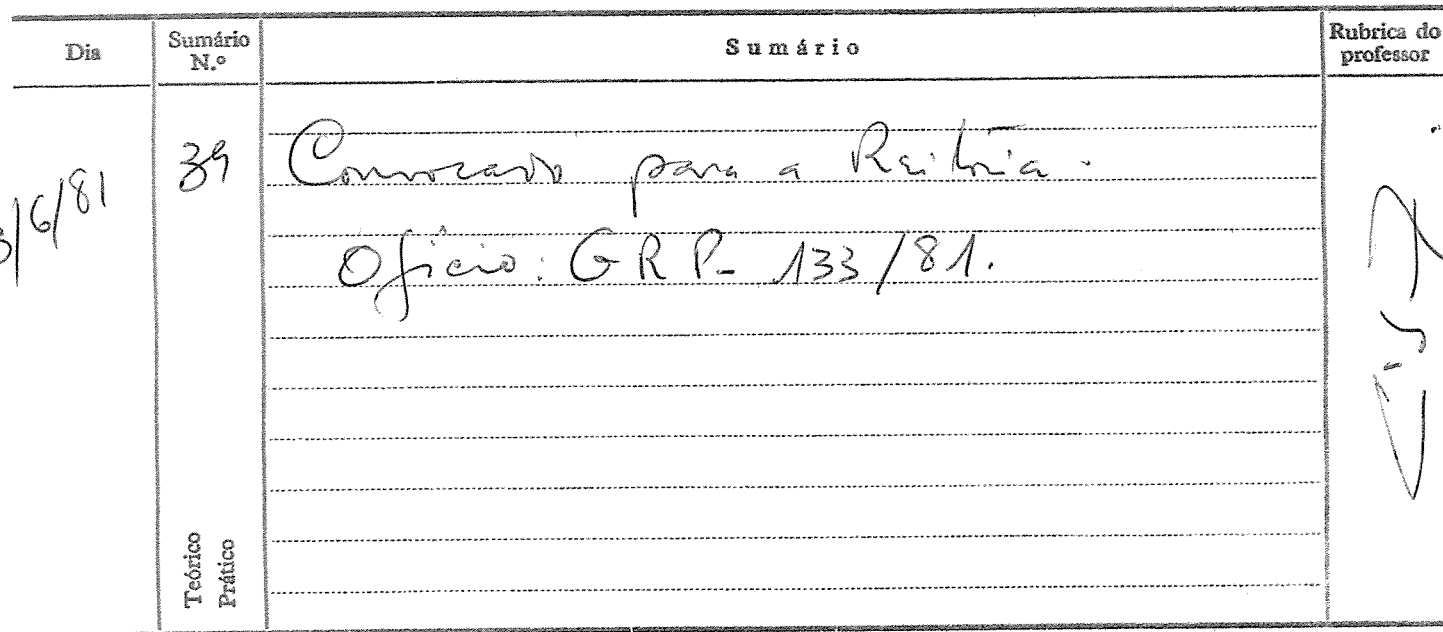 Dia
Sumário N.º
Sumário
Rubrica do professor
/6/81
39
Convocado para a Reitoria.
Ofício: GRP- 133/81.
Teórico
Prático